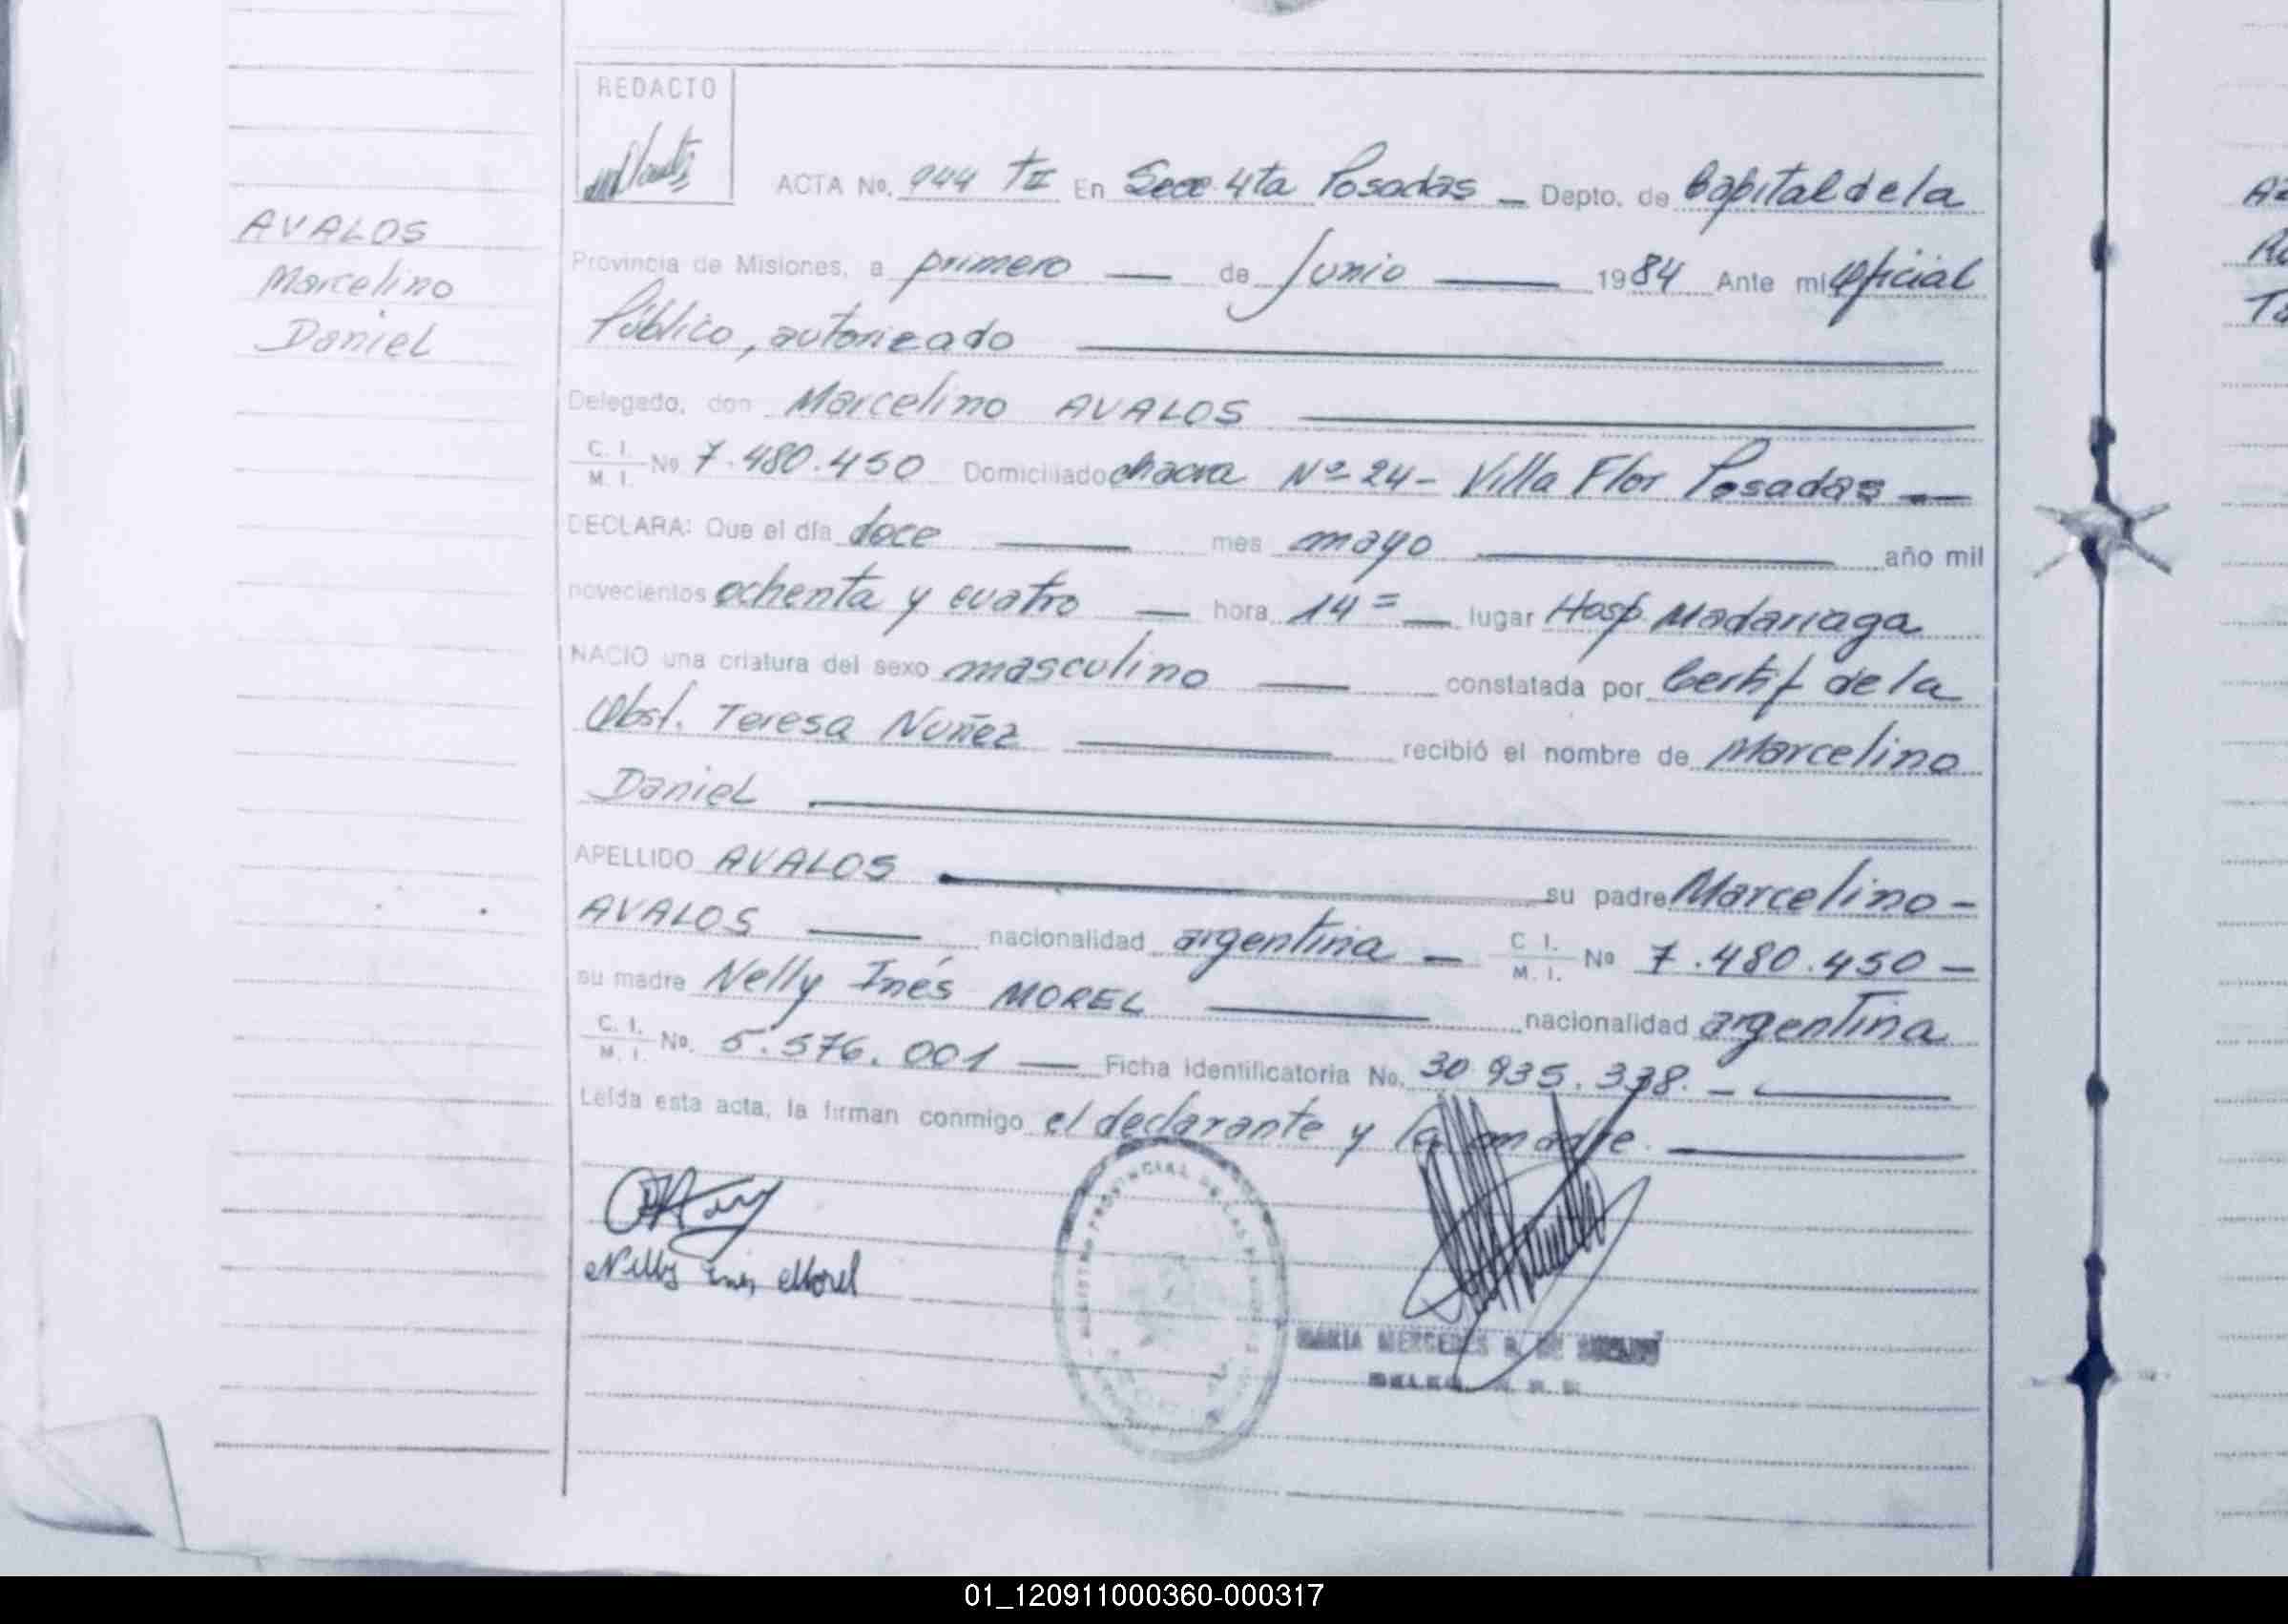 REDACTO
ACTA No. 944 TII En Secc 4ta Posadas — Depto. de Capital de la
AVALOS
Marcelino
Daniel
Provincia de Misiones, a primero — de Junio — 1984 Ante mi Oficial
Público, autorizado
Delegado, don Marcelino AVALOS
C. I. M. I. No 7.480.450 Domiciliado chacra Nº 24 - Villa Flor Posadas —
DECLARA: Que el día doce — mes mayo — año mil
novecientos ochenta y cuatro — hora 14 = — lugar Hosp. Madariaga
NACIO una criatura del sexo masculino — constatada por Certif de la
Obst. Teresa Nuñez — recibió el nombre de Marcelino
Daniel
APELLIDO AVALOS — su padre Marcelino -
AVALOS — nacionalidad argentina — C. I. M. I. No 7.480.450 —
su madre Nelly Inés MOREL — nacionalidad argentina
C. I. M. I. No. 5.576.001 — Ficha identificatoria No. 30.935.338. —
Leída esta acta, la firman conmigo el declarante y la madre.
Nelly Ines Morel
MARIA MERCEDES R. DE
01_120911000360-000317